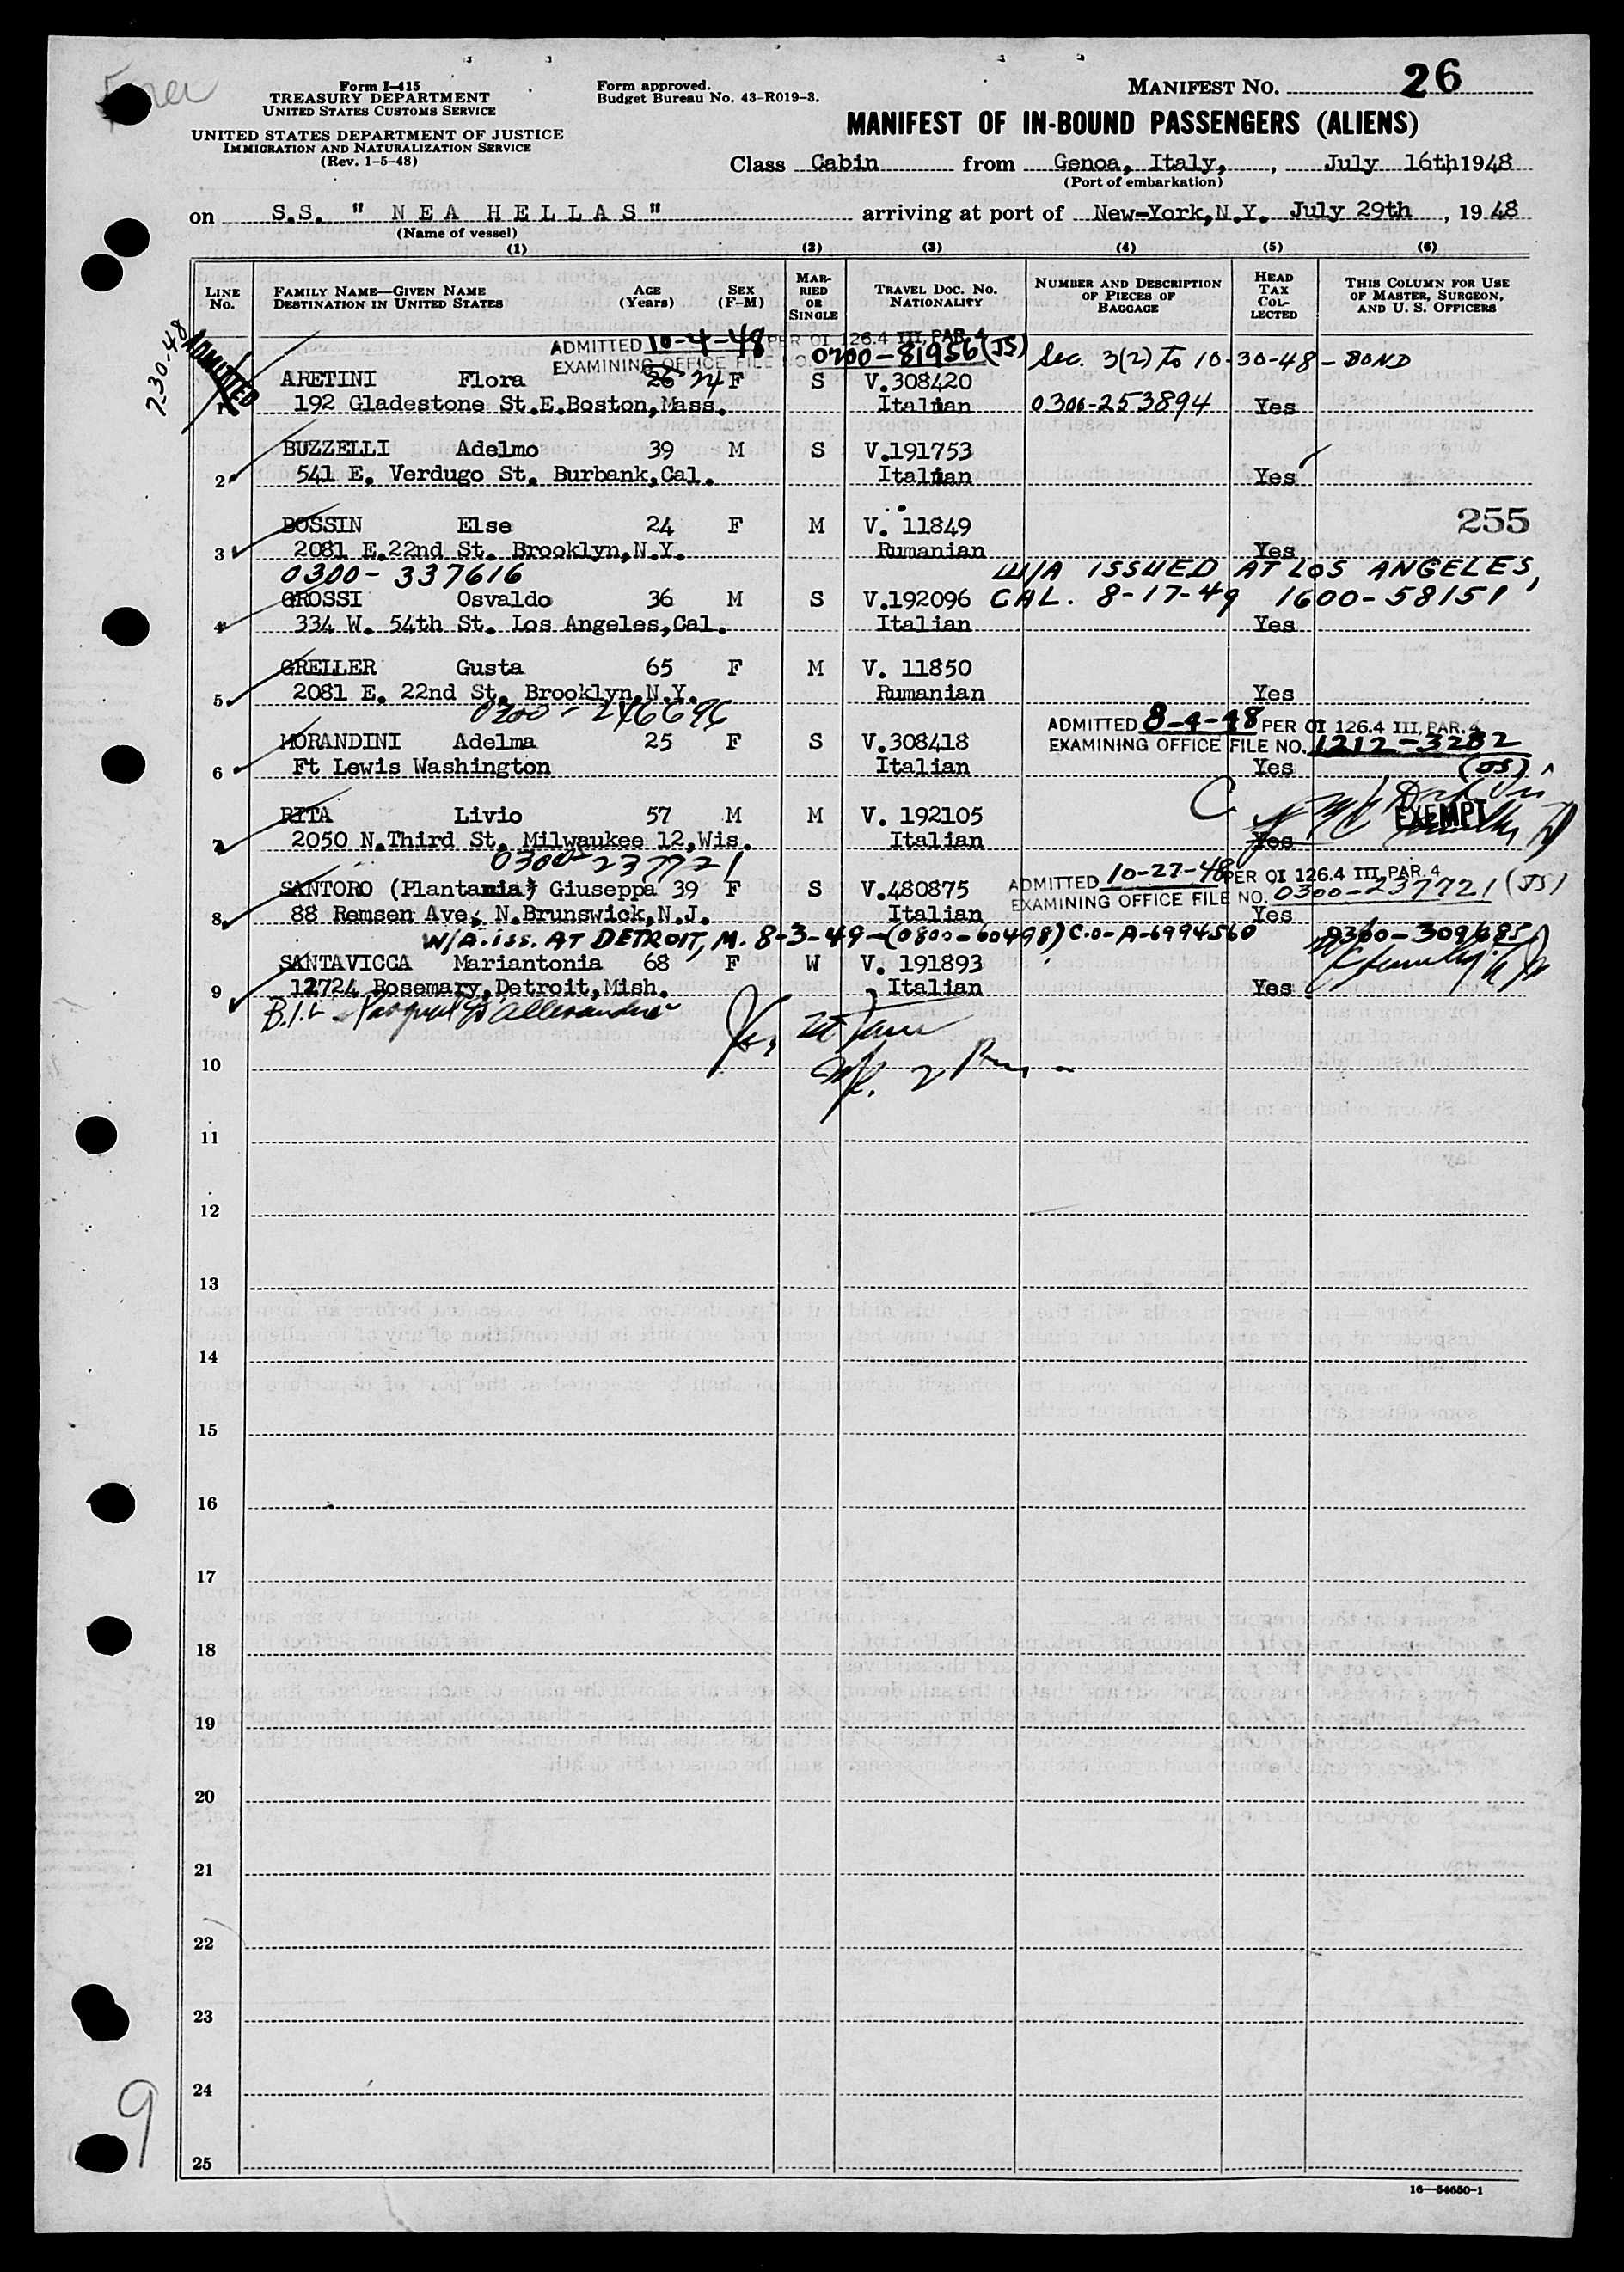 Form I-415
TREASURY DEPARTMENT
UNITED STATES CUSTOMS SERVICE
UNITED STATES DEPARTMENT OF JUSTICE
IMMIGRATION AND NATURALIZATION SERVICE
(Rev. 1-5-48)
Form approved.
Budget Bureau No. 43-R019-3.
MANIFEST NO. 26
MANIFEST OF IN-BOUND PASSENGERS (ALIENS)
Class Cabin from Genoa, Italy, , July 16th, 1948
(Port of embarkation)
on S.S. " NEA HELLAS" arriving at port of New-York, N.Y. July 29th , 19 48
(Name of vessel)
(1) (2) (3) (4) (5) (6)
LINE NO.
FAMILY NAME—GIVEN NAME DESTINATION IN UNITED STATES
AGE (Years)
SEX (F-M)
MARRIED OR SINGLE
TRAVEL DOC. NO. NATIONALITY
NUMBER AND DESCRIPTION OF PIECES OF BAGGAGE
HEAD TAX COLLECTED
THIS COLUMN FOR USE OF MASTER, SURGEON, AND U. S. OFFICERS
7-30-48
ADMITTED
ADMITTED 10-4-48 PER OI 126.4 III, PAR. 4
EXAMINING OFFICE FILE NO. 0700-81956 (JS) Sec. 3(2) to 10-30-48 - BOND
ARETINI Flora 26 24 F S V.308420
1 192 Gladestone St.E.Boston,Mass. Italian 0300-253894 Yes
BUZZELLI Adelmo 39 M S V.191753
2 541 E. Verdugo St. Burbank,Cal. Italian Yes
255
BOSSIN Else 24 F M V. 11849
3 2081 E.22nd St. Brooklyn,N.Y. Rumanian Yes
0300-337616 W/A ISSUED AT LOS ANGELES,
GROSSI Osvaldo 36 M S V.192096 CAL. 8-17-49 1600-58151
4 334 W. 54th St. Los Angeles,Cal. Italian Yes
GRELLER Gusta 65 F M V. 11850
5 2081 E. 22nd St. Brooklyn,N.Y. Rumanian Yes
0300-246696
ADMITTED 8-4-48 PER OI 126.4 III, PAR. 4
MORANDINI Adelma 25 F S V.308418 EXAMINING OFFICE FILE NO. 1212-3282
6 Ft Lewis Washington Italian Yes (JS)
EXEMPT
RITA Livio 57 M M V. 192105
7 2050 N.Third St. Milwaukee 12,Wis. Italian Yes
0300-237721
ADMITTED 10-27-48 PER OI 126.4 III, PAR. 4
SANTORO (Plantania) Giuseppa 39 F S V.480875 EXAMINING OFFICE FILE NO. 0300-237721 (JS)
8 88 Remsen Ave, N.Brunswick,N.J. Italian Yes
W/A iss. AT DETROIT, M. 8-3-49-(0800-60498) C.O-A-6994560 0300-309685
SANTAVICCA Mariantonia 68 F W V. 191893
9 12724 Rosemary,Detroit,Mish. Italian Yes
B.I.L
10
11
12
13
14
15
16
17
18
19
20
21
22
23
24
25
9
16—54650-1